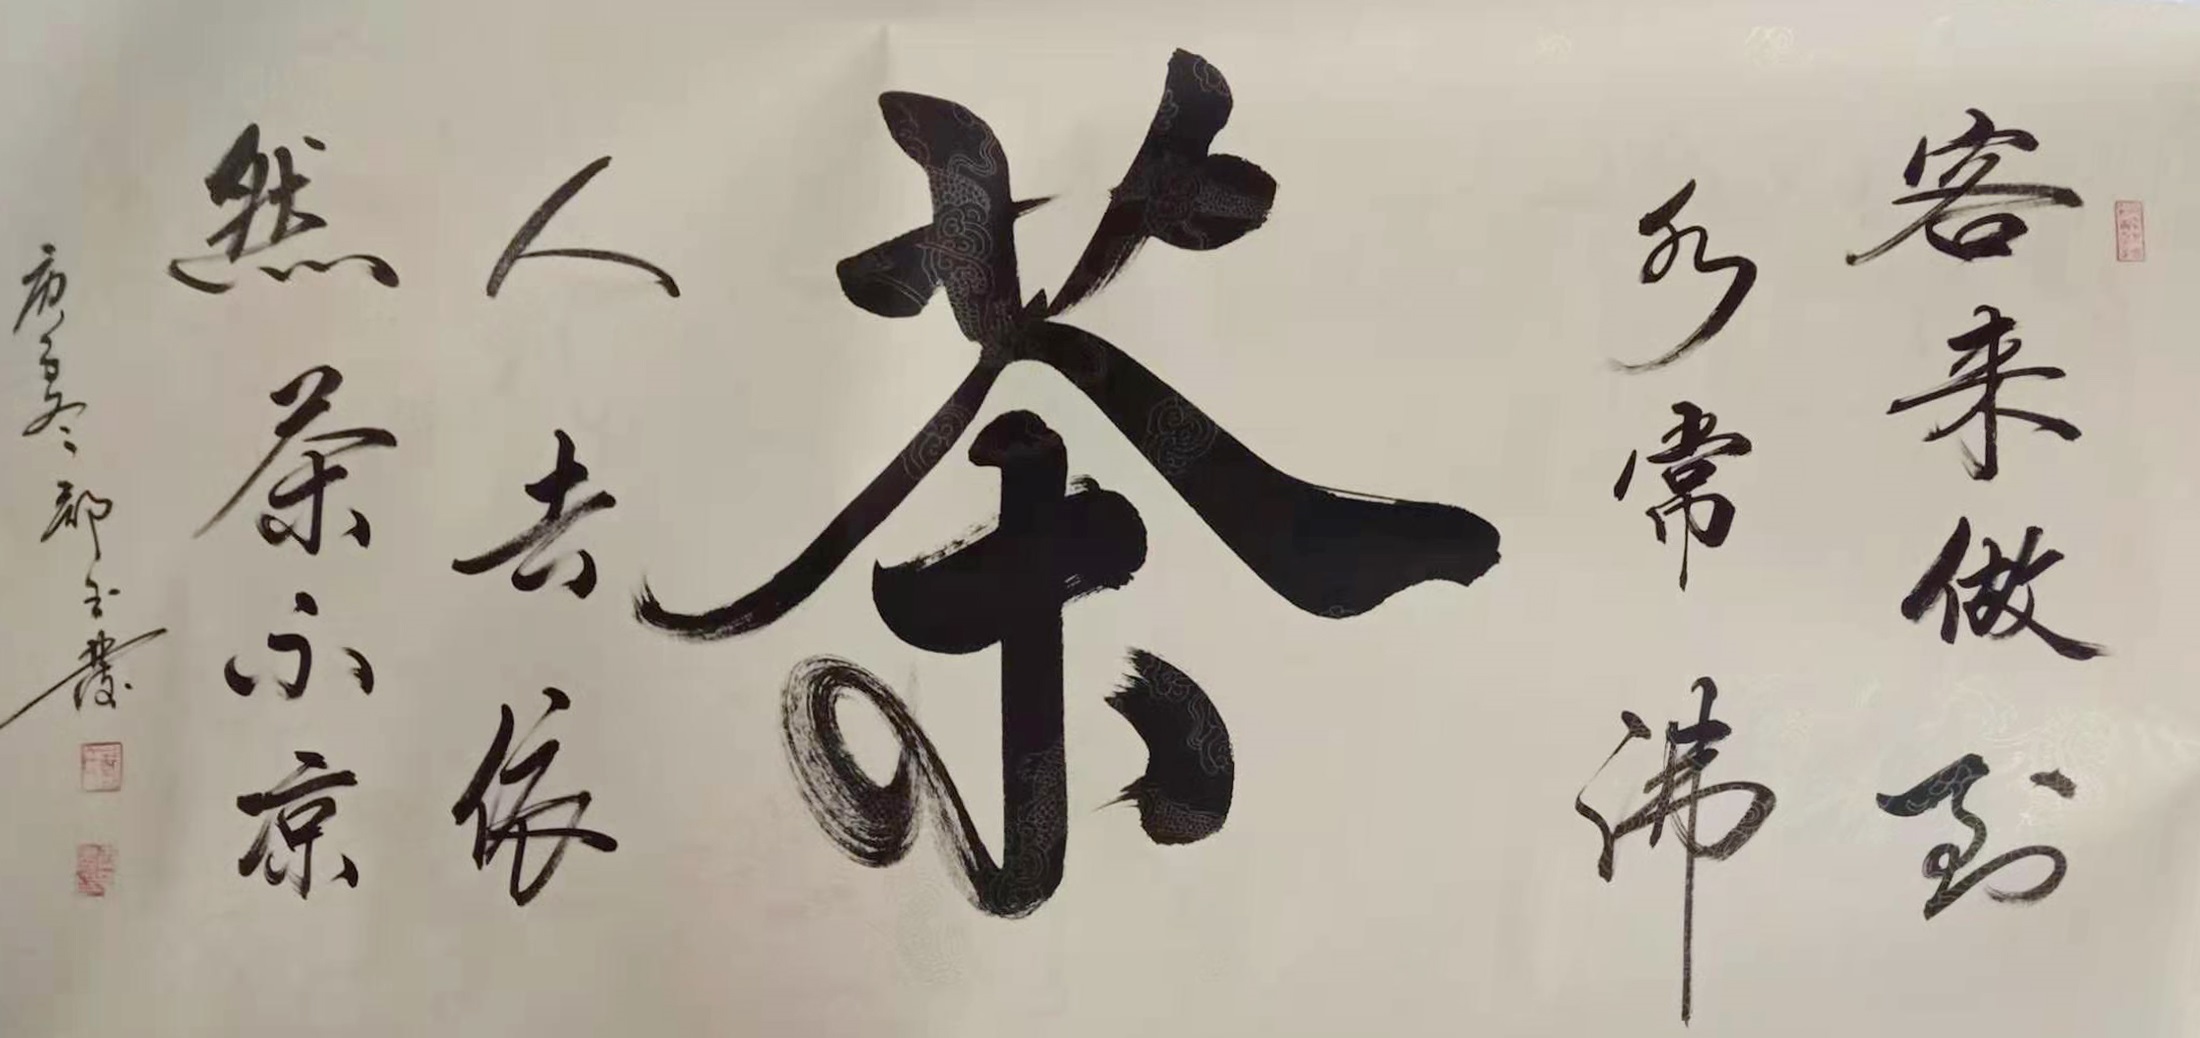 客来做到
水常沸
茶
人去依
然茶不凉
庚子冬